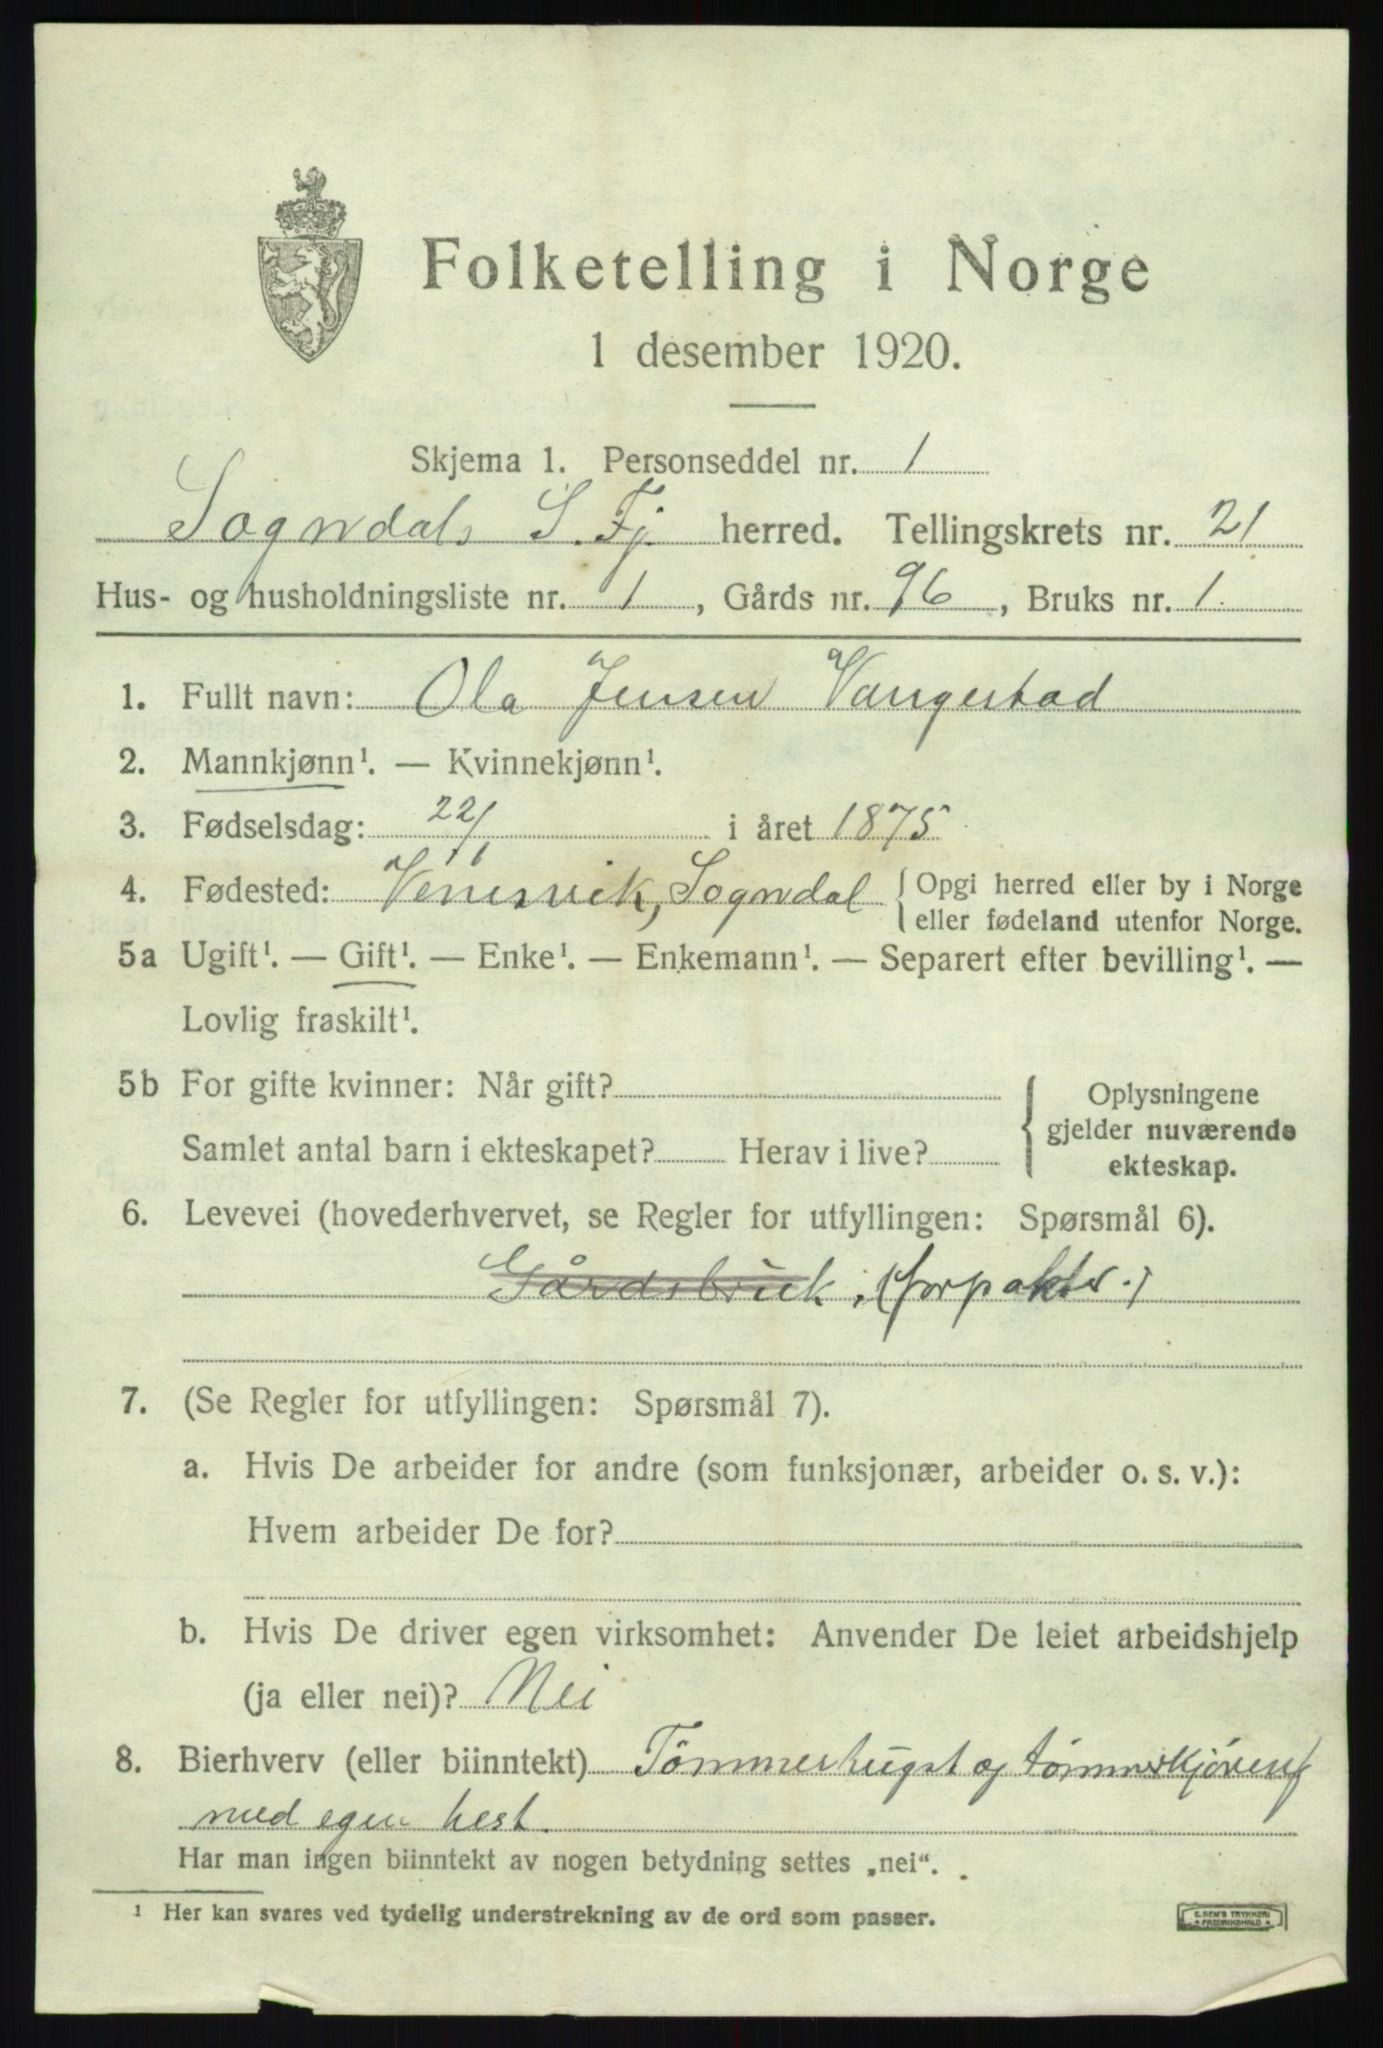 Folketelling i Norge
1 desember 1920.
Skjema 1. Personseddel nr. 1
Sogndals S. Fj. herred. Tellingskrets nr. 21
Hus- og husholdningsliste nr. 1, Gårds nr. 96, Bruks nr. 1.
1. Fullt navn: Ola Jensen Vangestad
2. Mannkjønn¹. — Kvinnekjønn¹.
3. Fødselsdag: 22/6 i året 1875
4. Fødested: Sogndal { Opgi herred eller by i Norge
eller fødeland utenfor Norge.
5a Ugift¹. — Gift¹. — Enke¹. — Enkemann¹. — Separert efter bevilling¹. —
Lovlig fraskilt¹.
5b For gifte kvinner: Når gift?
Samlet antal barn i ekteskapet? Herav i live?
Oplysningene
gjelder nuværende
ekteskap.
6. Levevei (hovederhvervet, se Regler for utfyllingen: Spørsmål 6).
Gårdsbruk, (forpakter.)
7. (Se Regler for utfyllingen: Spørsmål 7).
a. Hvis De arbeider for andre (som funksjonær, arbeider o. s. v.):
Hvem arbeider De for?
b. Hvis De driver egen virksomhet: Anvender De leiet arbeidshjelp
(ja eller nei)? Nei
8. Bierhverv (eller biinntekt) Tömmerhugst og tömmerkjöring
med egen hest.
Har man ingen biinntekt av nogen betydning settes „nei“.
¹ Her kan svares ved tydelig understrekning av de ord som passer.
FREDRIKSHALD